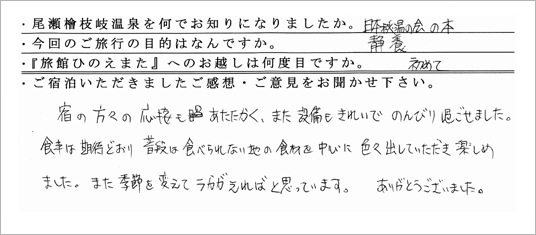 ・尾瀬檜枝岐温泉を何でお知りになりましたか。 日本秘湯の会の本
・今回のご旅行の目的はなんですか。 静養
・『旅館ひのえまた』へのお越しは何度目ですか。 初めて
・ご宿泊いただきましたご感想・ご意見をお聞かせ下さい。
宿の方々の応接もあたたかく、また設備もきれいでのんびり過ごせました。
食事は期待どおり普段は食べられない地の食材を中心に色々出していただき楽しめ
ました。また季節を変えてうかがえればと思っています。 ありがとうございました。